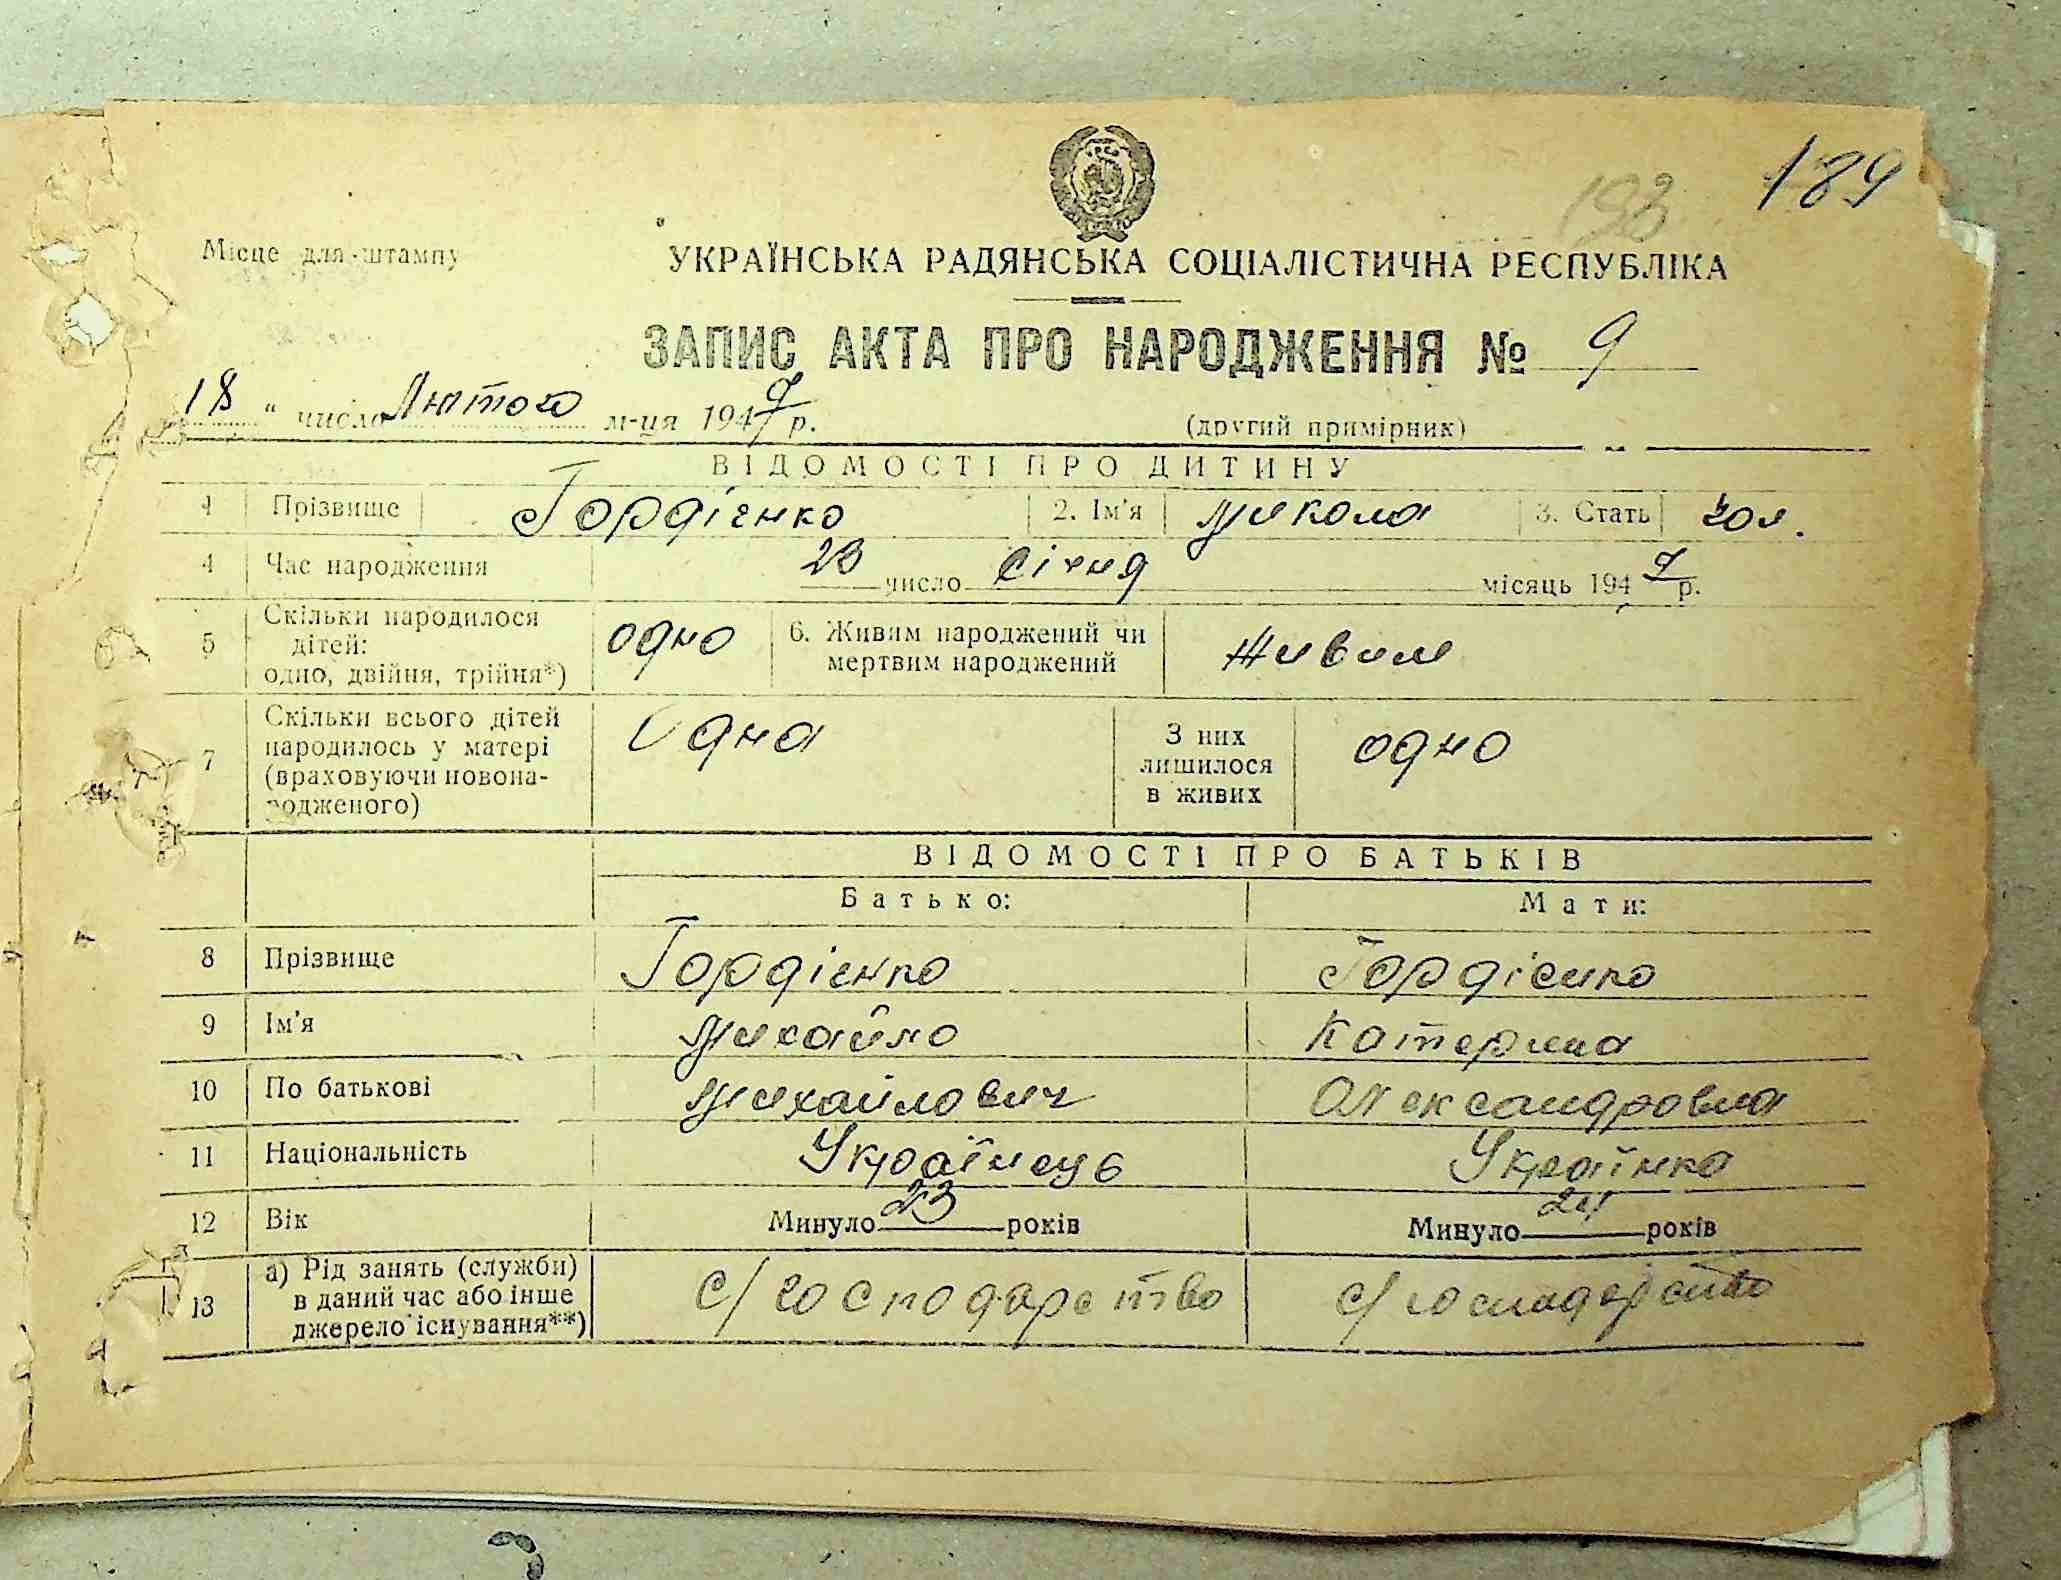 189
193
Місце для штампу
УКРАЇНСЬКА РАДЯНСЬКА СОЦІАЛІСТИЧНА РЕСПУБЛІКА
ЗАПИС АКТА ПРО НАРОДЖЕННЯ № 9
18 " число Лютого м-ця 1947 р.
(другий примірник)
ВІДОМОСТІ ПРО ДИТИНУ
1 Прізвище Гордієнко 2. Ім'я Микола 3. Стать чол.
4 Час народження 23 число Січня місяць 1947 р.
5 Скільки народилося дітей: одно, двійня, трійня*) одно 6. Живим народжений чи мертвим народжений Живим
7 Скільки всього дітей народилось у матері (враховуючи новонародженого) Одна З них лишилося в живих одно
ВІДОМОСТІ ПРО БАТЬКІВ
Батько: Мати:
8 Прізвище Гордієнко Гордієнко
9 Ім'я Михайло Катерина
10 По батькові Михайлович Олександровна
11 Національність Українець Українка
12 Вік Минуло 23 років Минуло 24 років
13 а) Рід занять (служби) в даний час або інше джерело існування**) с/господарство с/господарство